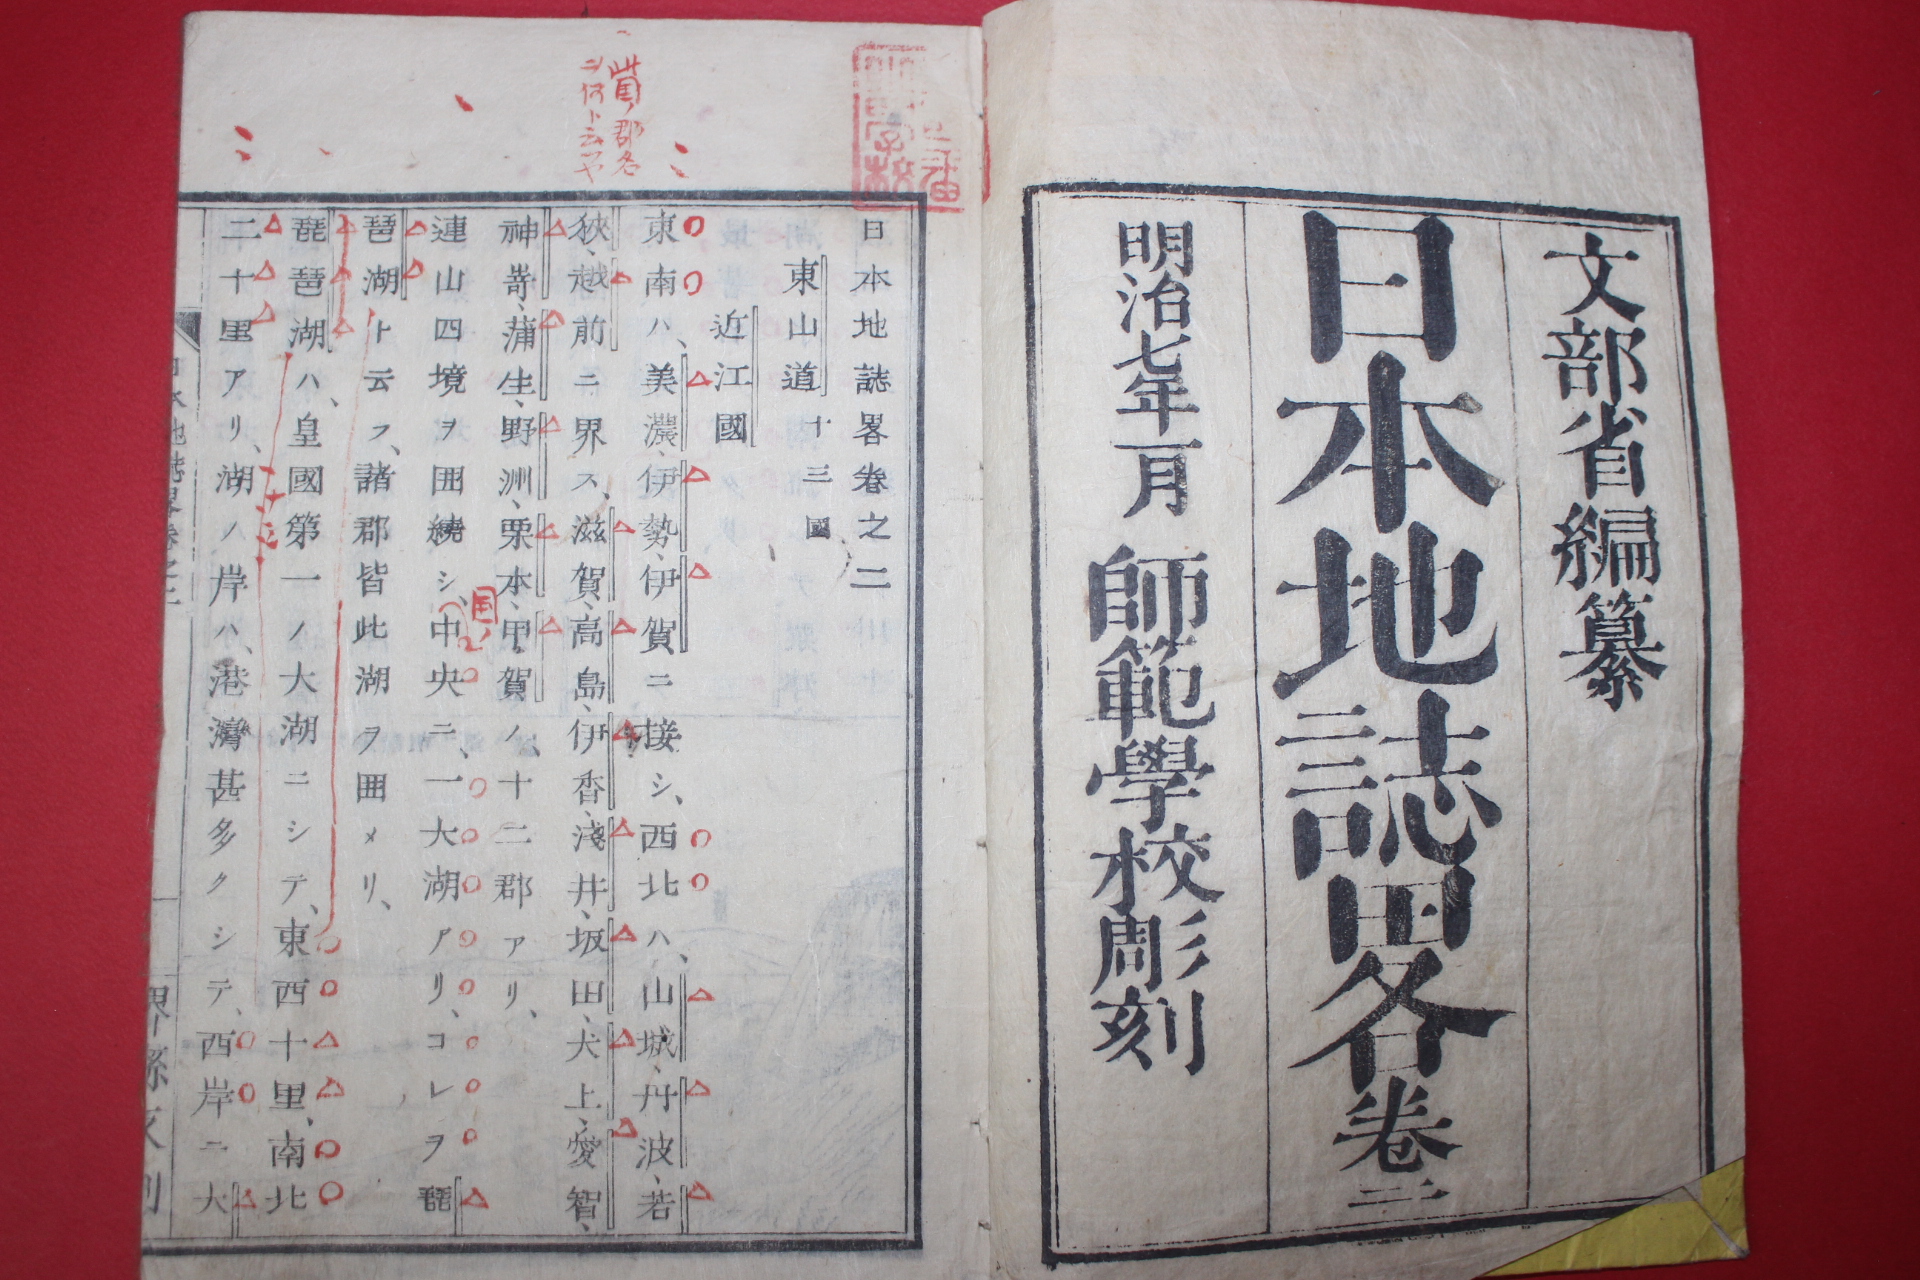 文部省編纂
日本地誌畧卷二
明治七年一月 師範學校彫刻
日本地誌畧卷之二
東山道 十三國
近江國
東南ハ、美濃、伊勢、伊賀ニ接シ、西北ハ、山城、丹波、若
狹、越前ニ界ス、滋賀、高島、伊香、淺井、坂田、犬上、愛智、
神嵜、蒲生、野洲、栗本、甲賀ノ、十二郡アリ、
連山四境ヲ囲繞シ、中央ニ、一大湖アリ、コレヲ琵
琶湖ト云フ、諸郡皆此湖ヲ囲メリ、
琵琶湖ハ、皇國第一ノ大湖ニシテ、東西十里、南北
二十里アリ、湖ノ岸ハ、港灣甚多クシテ、西岸ニ大
日本地誌畧卷之二
此國ノ郡名
ニ何ト云フヤ
国ノ